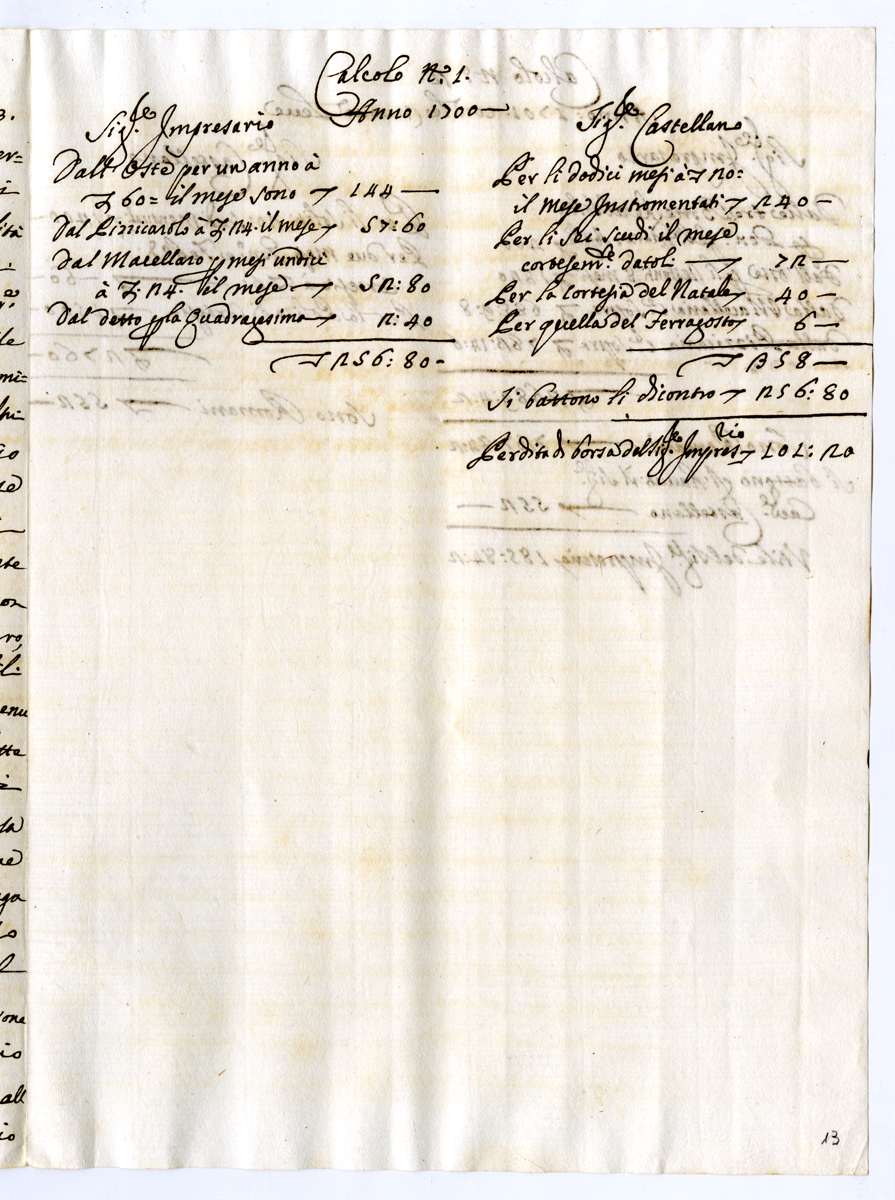 Calcolo N.º 1.
Anno 1700 —
Sig.re Impresario
Dall'Oste per un anno à
£ 60 = il mese sono — 144 —
Dal Pizzicarolo à £ 24. il mese — 57:60
Dal Macellaro p mesi undici
à £ 24. il mese — 52:80
Dal detto p la Quadragesima — 2:40
— 256:80 -
Sig.re Castellano
Per li dodici mesi à — 20:
il mese Instromentati — 240 —
Per li sei scudi il mese
cortesem.te datoli — 72 —
Per la cortesia del Natale — 40 —
Per quella del Ferragosto — 6 —
— 358 —
Si battono li dicontro — 256:80
Perdita di borsa del Sig.re Impres.rio — 101:20
13